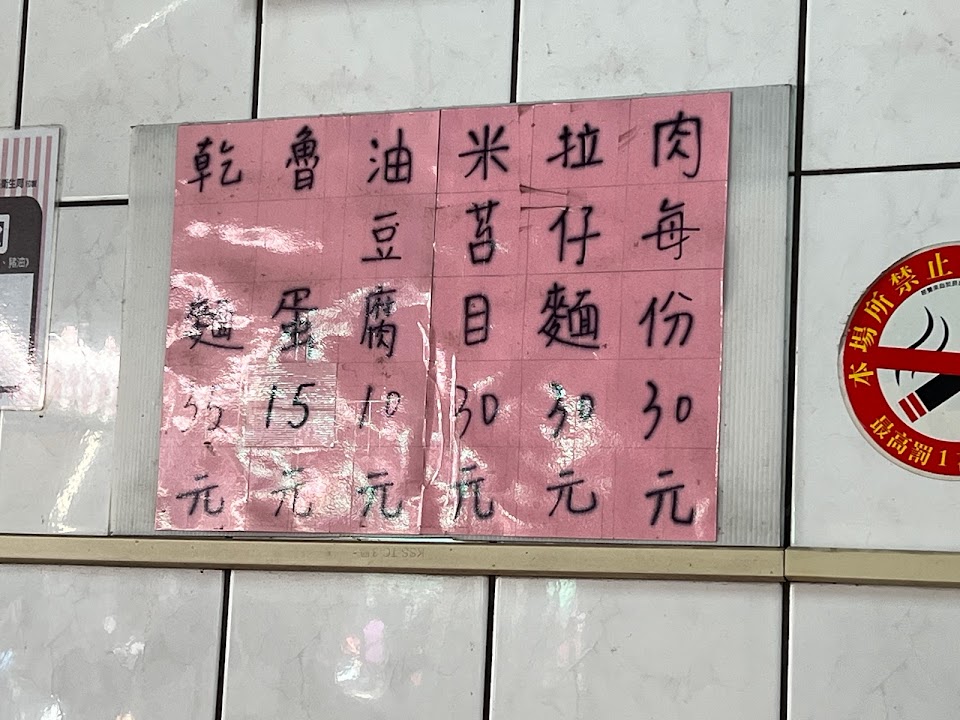 肉每份30元
拉仔麵30元
米苔目30元
油豆腐10元
魯蛋15元
乾麵35元
本場所禁止
最高罰1
衛生局
、豬油)